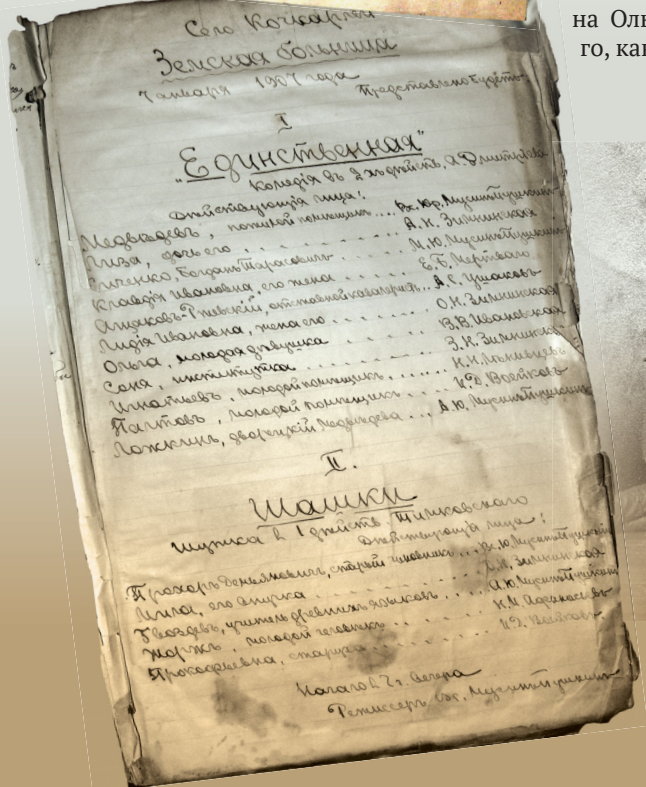 на Оль
го, как
Село Кочкарлей
Земская больница
7 января 1907 года
Представлено будетъ:
I
"Единственная"
Комедiя въ 2хъ действ. А. Дмитрiева
Действующiя лица:
Медведевъ, пожилой помещикъ ... Вл. Юр. Мусинъ-Пушкинъ
Лиза, дочь его ... А. Н. Зимнинская
Богданъ Тарасовичъ ... М. Ю. Мусинъ-Пушкинъ
Клавдiя Ивановна, его жена ... Е. Б. Мертваго
Ржевскiй, отставной кавалеристъ ... А. С. Ушаковъ
Лидiя Ивановна, жена его ... О. Н. Зимнинская
Ольга, молодая девушка ... В. В. Ивановская
Соня, институтка ... З. Н. Зимнинская
Игнатьевъ, молодой помещикъ ... Н. Н.
Пахтовъ, молодой помещикъ ... И. Д. Воейковъ
Ложкинъ, дворецкiй Медведева ... А. Ю. Мусинъ-Пушкинъ
II.
Шашки
шутка в 1 действ. Тимковского
Действующiя лица:
Прохоръ Демьяновичъ, старый чиновникъ ... В. Ю. Мусинъ-Пушкинъ
его внучка ... Зимнинская
Гвоздевъ, учитель древнихъ языковъ ... А. Ю. Мусинъ-Пушкинъ
Жоржъ, молодой человекъ ... Н. М. Афанасьевъ
Прокофьевна, старуха ... И. Д. Воейковъ
Начало в 7 ч. вечера
Режиссеръ Вл. Мусинъ-Пушкинъ